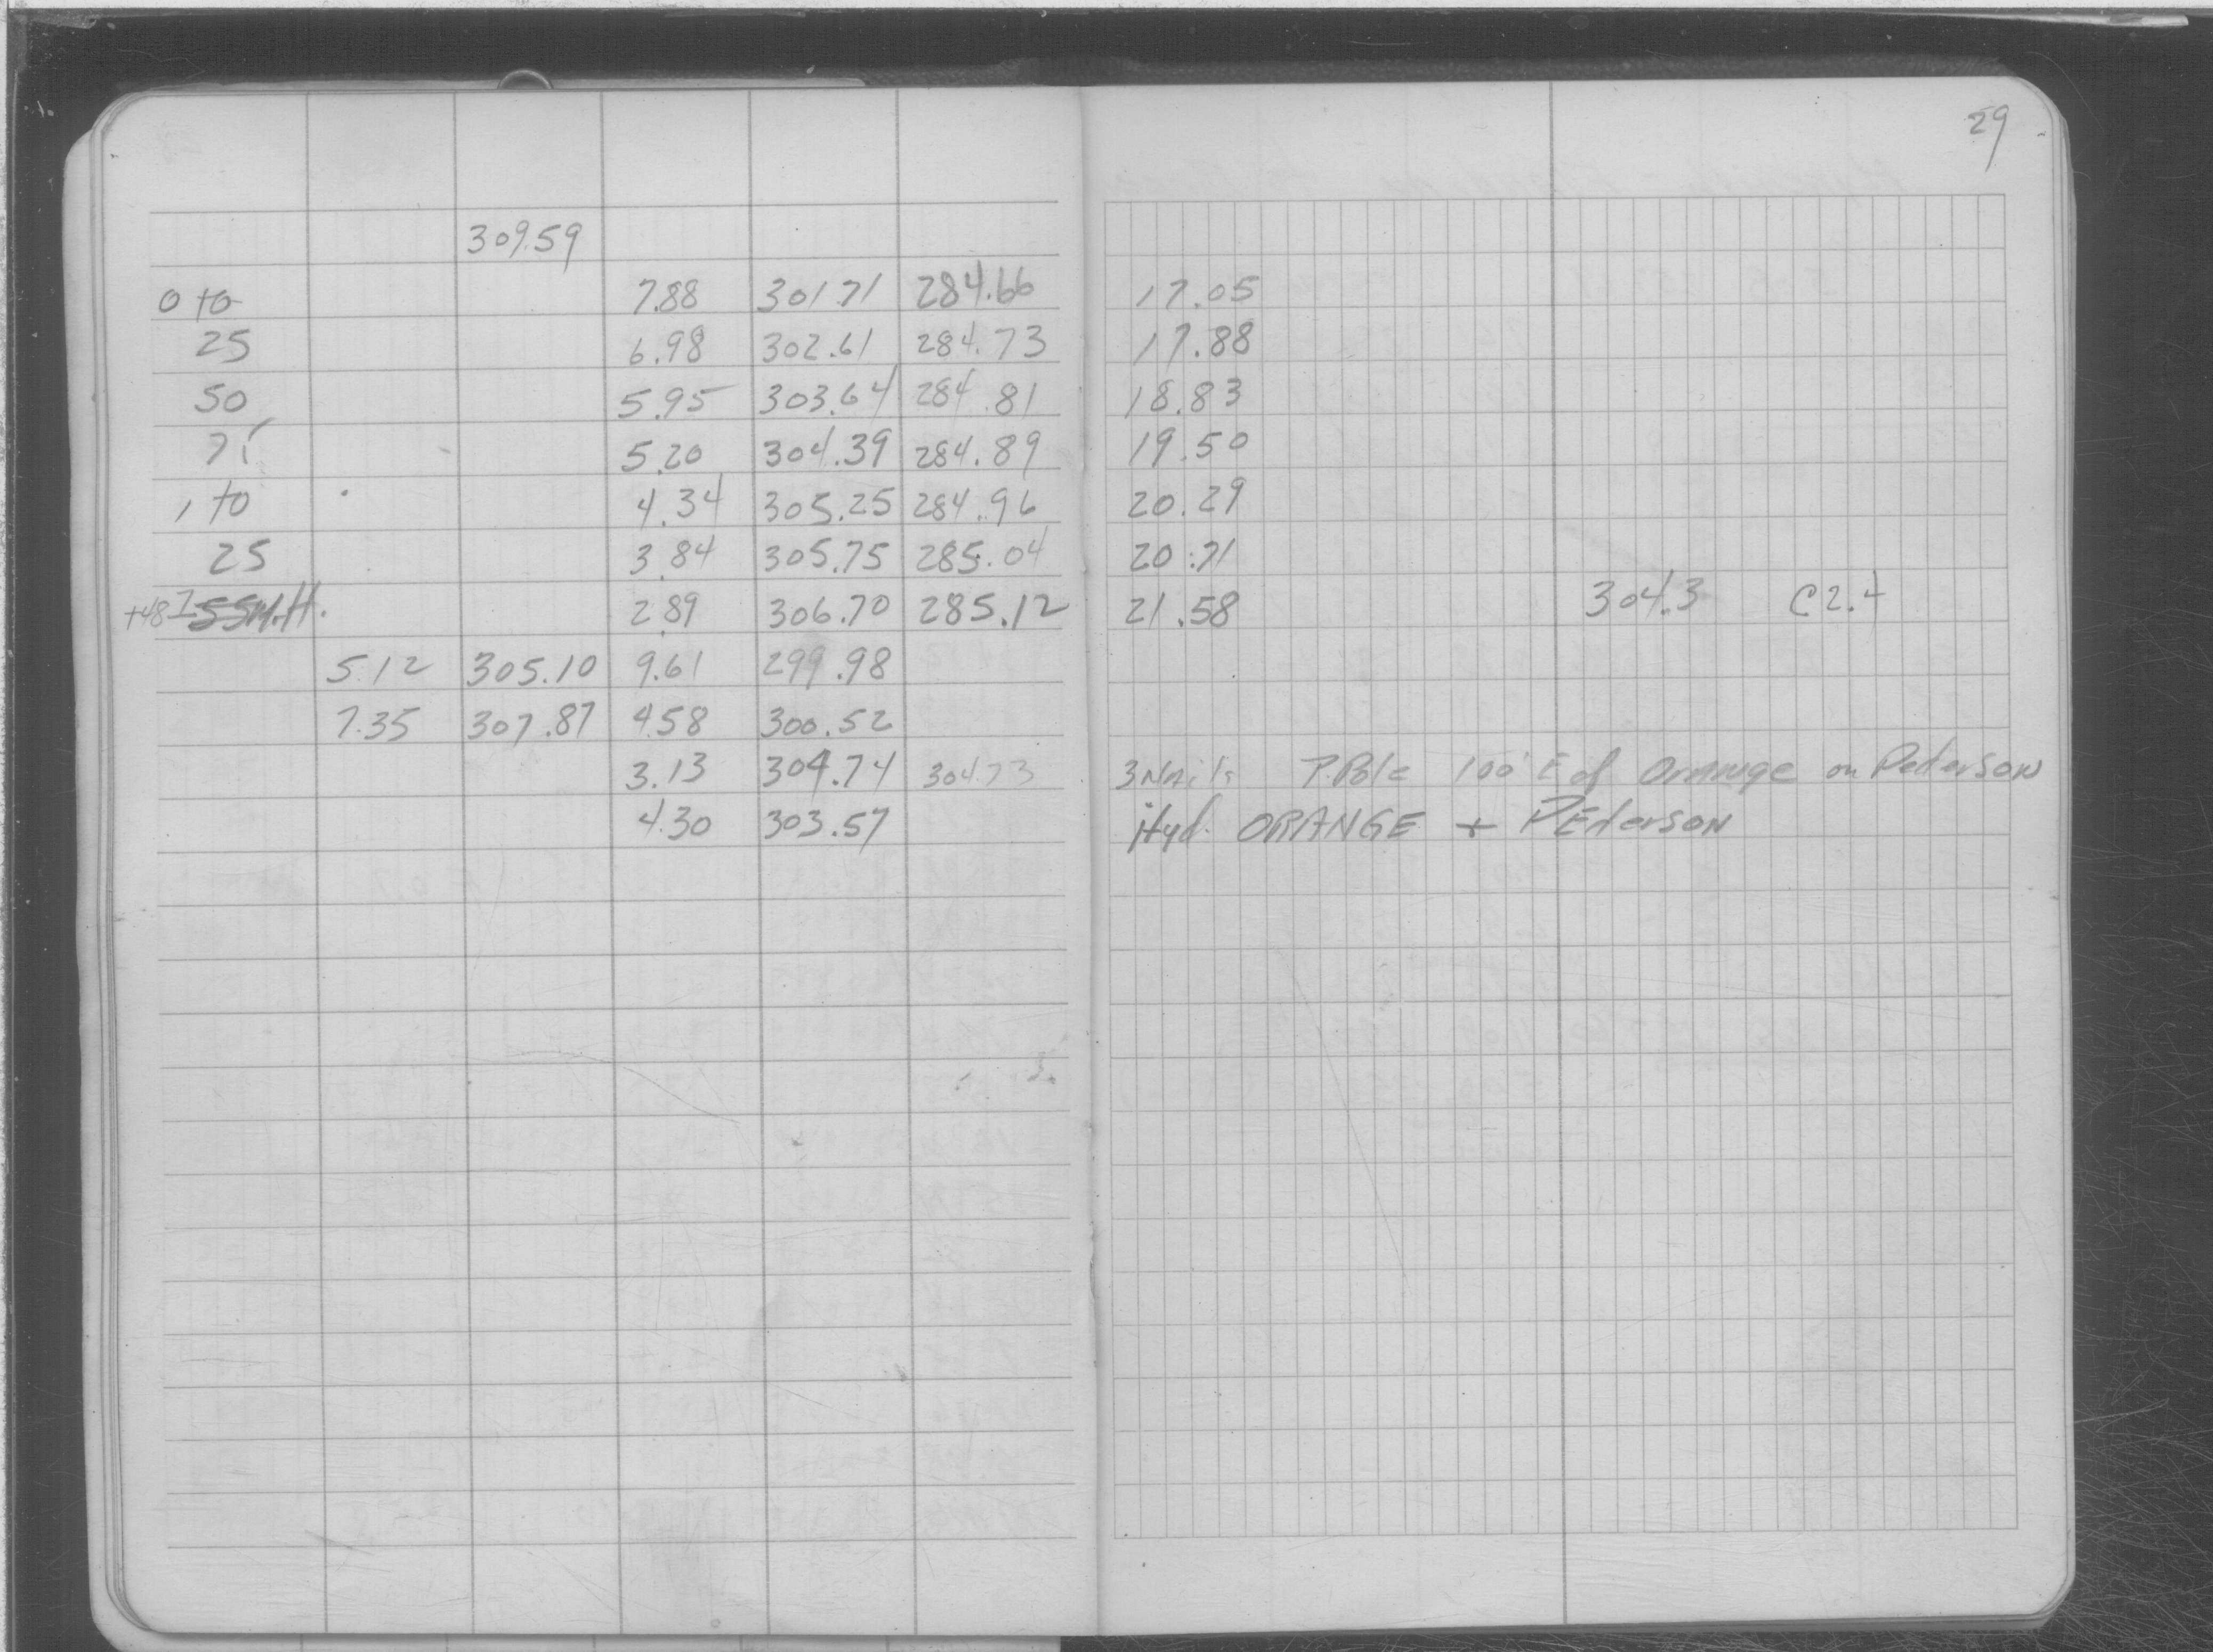 29
309.59
0+0 7.88 301.71 284.66 17.05
25 6.98 302.61 284.73 17.88
50 5.95 303.64 284.81 18.83
75 5.20 304.39 284.89 19.50
1+0 4.34 305.25 284.96 20.29
25 3.84 305.75 285.04 20.71
+48 SSM.H. 2.89 306.70 285.12 21.58 304.3 C2.4
5.12 305.10 9.61 299.98
7.35 307.87 4.58 300.52
3.13 304.74 304.73 3 Nails P.Pole 100' E of Orange on Pederson
4.30 303.57 Hyd. ORANGE + PEderson